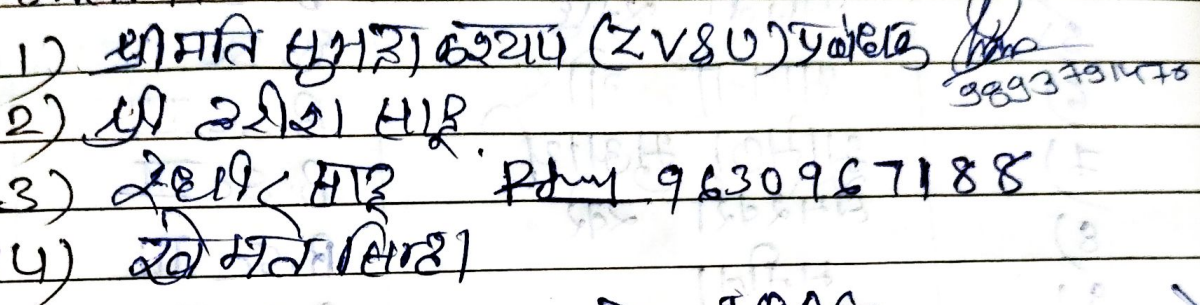 1) श्रीमति सुभद्रा कश्यप (ZVSU) प्रबंधक
9893791470
2) श्री हरीश साहू
3) साहू 9630967188
4) खेमते सिन्हा